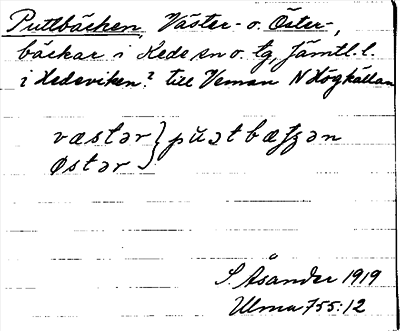 Puttbäcken, Väster- o. Öster-,
bäckar i Hede sn o. tg, Jämtl. l.
i Hedeviken? till Veman N Högkällan
væstər } puətbætʃən
østər
S Åsander 1919
Ulma 755:12